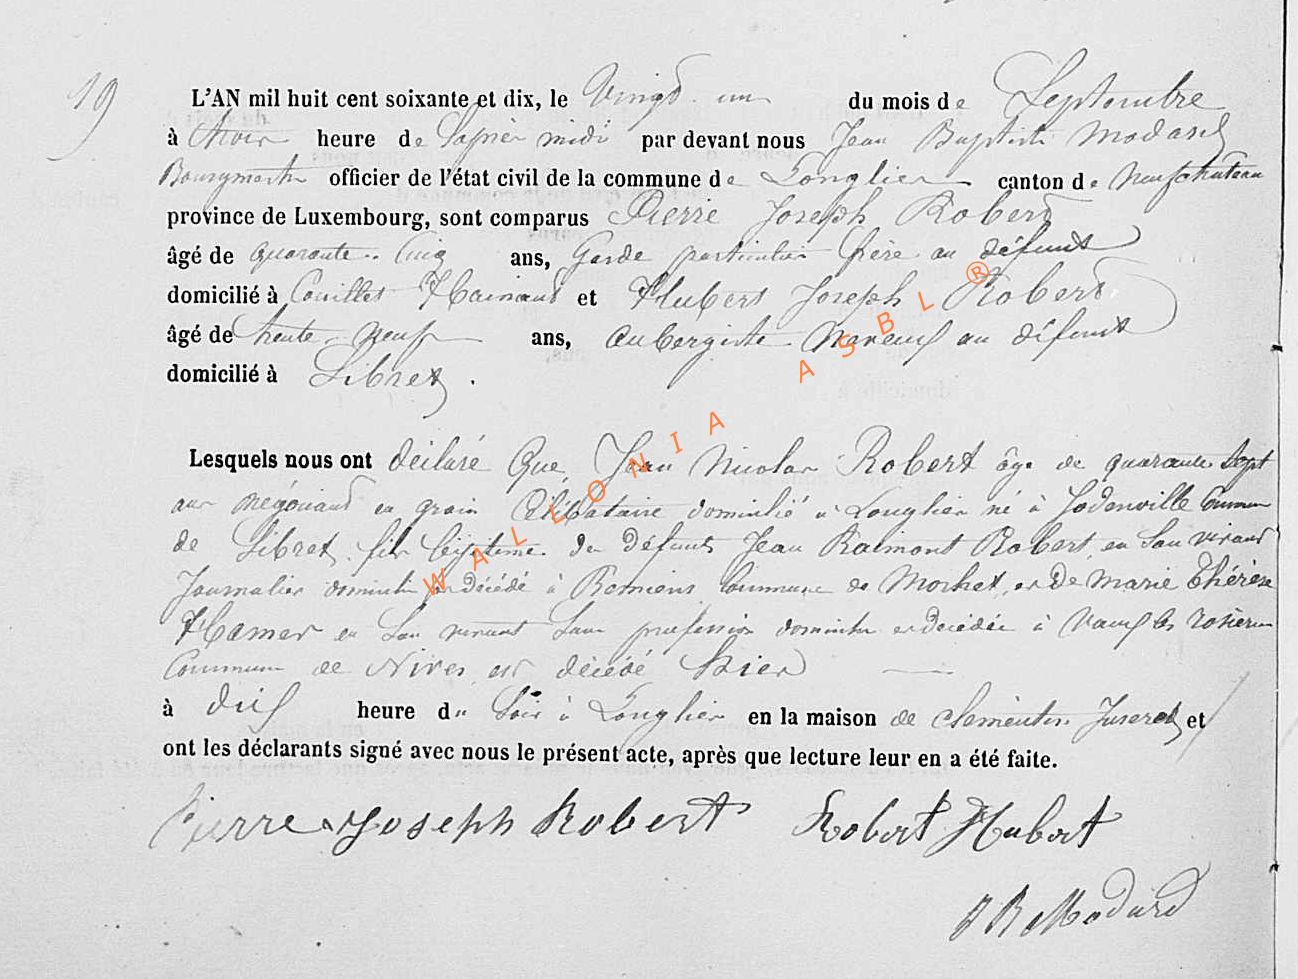 19
L'AN mil huit cent soixante et dix, le Vingt un du mois de Septembre
à trois heure de l'aprèr midi par devant nous Jean Baptiste Modard
Bourgmestre officier de l'état civil de la commune de Longlier canton de Neufchateau
province de Luxembourg, sont comparus Pierre Joseph Robert
âgé de quarante cinq ans, Garde particulier frère au défunt
domicilié à Couillet Hainaut et Hubert Joseph Robert
âgé de trente neuf ans, aubergiste neveux au défunt
domicilié à Sibret.
Lesquels nous ont déclaré Que Jean Nicolas Robert âge de quarante Sept
ans négociant en grain Célibataire domicilié à Longlier né à Jodenville Commune
de Sibret fils légitime de défunts Jean Raimont Robert en Son vivant
Journalier domicilié et décédé à Remiens Commune de Morhet, et De Marie Thérèse
Hamer en Son vivant Sans profession domiciliée et décédée à Vaux les rosières
Commune de Nives, est décédé hier
à dix heure du Soir à Longlier en la maison de Clémentin Juseret et
ont les déclarants signé avec nous le présent acte, après que lecture leur en a été faite.
Pierre Joseph Robert Robert Hubert
Modard
WALLONIA ASBL ®